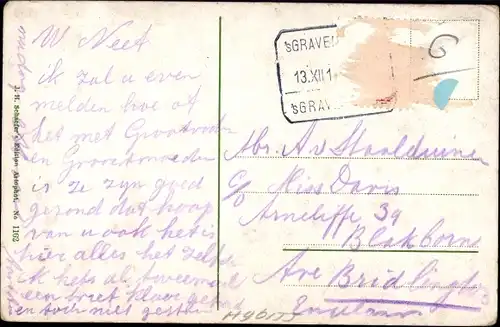 W Neet
ik zal u even
melden hoe of
het met Grootvader
en Grootmoeder
is ze zyn goed
gezond dat hoop
van u ook het is
hier alles het zelfde
ik heb al tweemaal
een brief klaar gehad
en toch niet
J. H. Schaefer's Kunst- No 1162
'sGRAVE
13.XII.1
'sGRAV
6
Mr. A v Staalduinen
c/o Miss Davis
Arncliffe 39
Blakborn
Ave Bridling